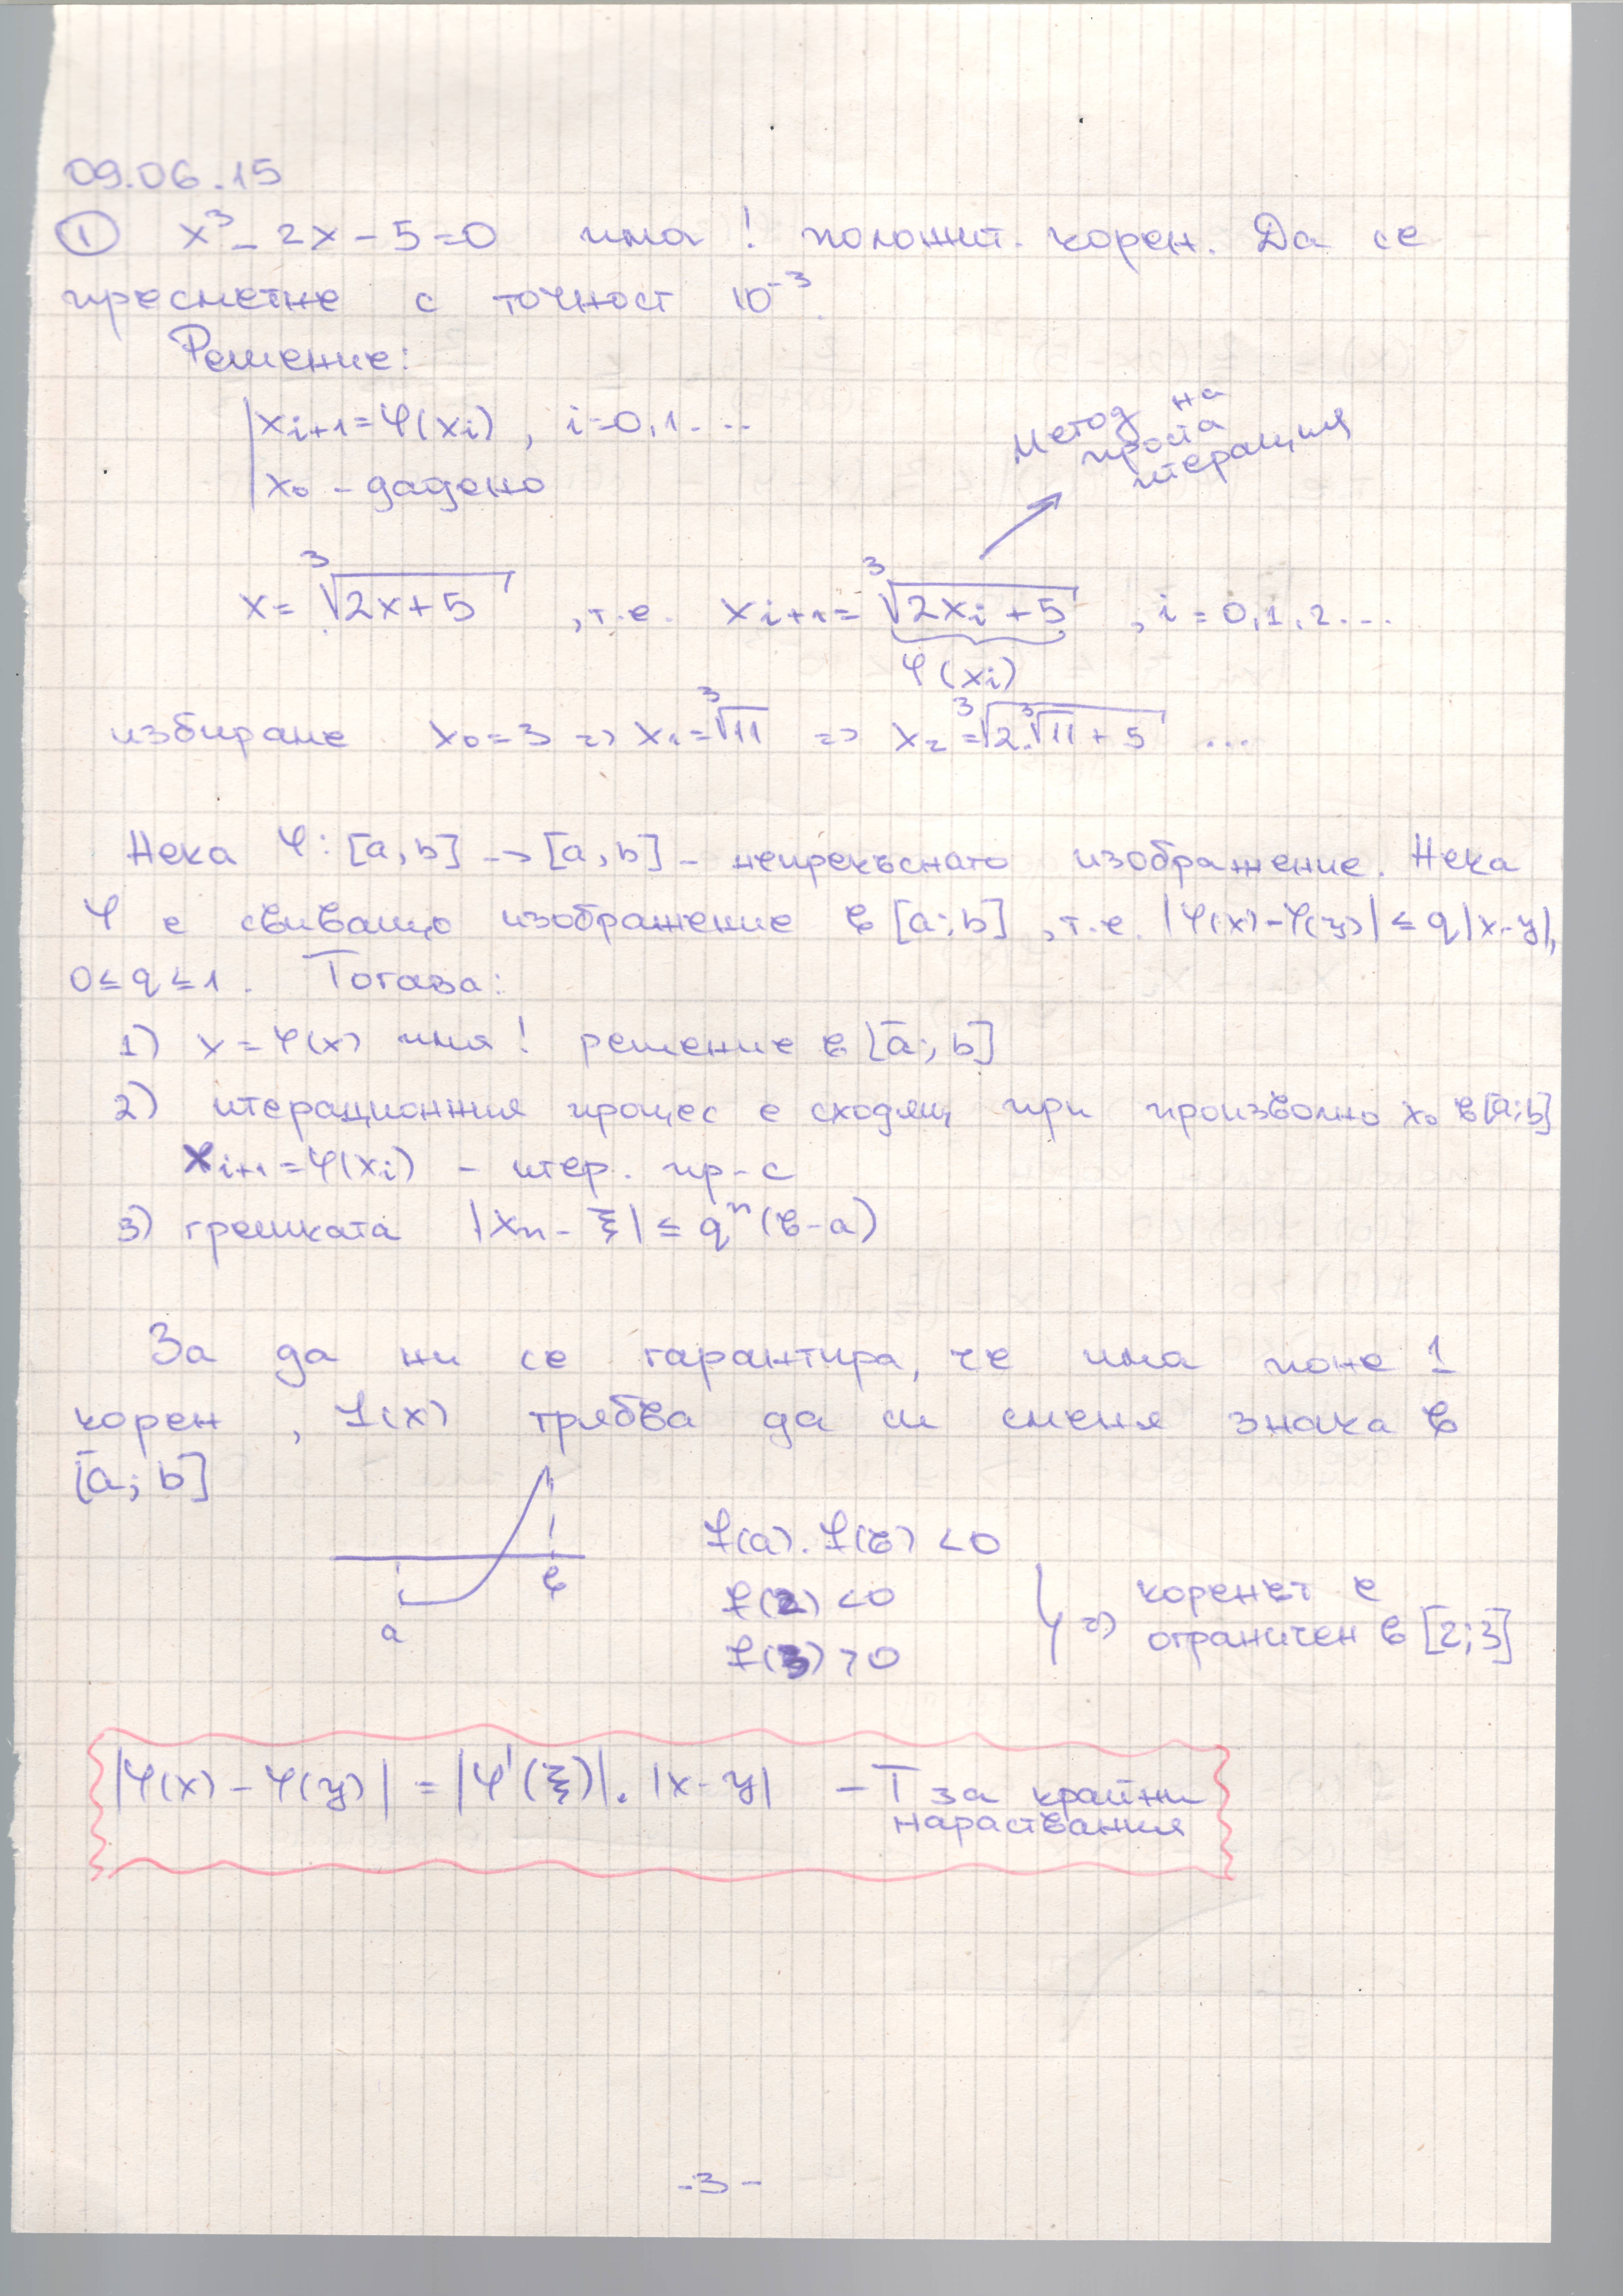 09.06.15
① x³ - 2x - 5 = 0 има ! положит. корен. Да се
пресметне с точност 10⁻³.
Решение:
| xᵢ₊₁ = φ(xᵢ), i=0,1...
| x₀ - дадено
метод на
проста
итерация
x = ∛(2x+5), т.е. xᵢ₊₁ = ∛(2xᵢ+5), i = 0,1,2...
φ(xᵢ)
избираме x₀=3 => x₁=∛11 => x₂=∛(2.∛11+5) ...
Нека φ: [a,b] -> [a,b] - непрекъснато изображение. Нека
φ е свиващо изображение в [a;b], т.е. |φ(x)-φ(y)| ≤ q|x-y|,
0≤q≤1. Тогава:
1) x=φ(x) има ! решение в [a;b]
2) итерационния процес е сходящ при произволно x₀ в [a;b]
xᵢ₊₁=φ(xᵢ) - итер. пр-с
3) грешката |xₙ - ξ| ≤ qⁿ(в-a)
За да ни се гарантира, че има поне 1
корен, f(x) трябва да си сменя знака в
[a; b]
a в
f(a). f(в) <0
f(2) <0
f(3) >0
} => коренът е
ограничен в [2;3]
|φ(x) - φ(y)| = |φ'(ξ)|. |x-y| - Т за крайни
нараствания
-3-